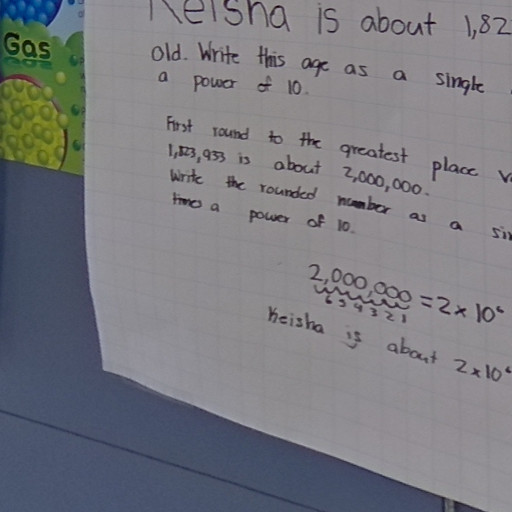 Gas
Keisha is about 1,82
old. Write this age as a single
a power of 10.
First round to the greatest place v
1,823,933 is about 2,000,000.
Write the rounded number as a sin
times a power of 10.
2,000,000 = 2 x 10⁶
6 5 4 3 2 1
Keisha is about 2 x 10⁶